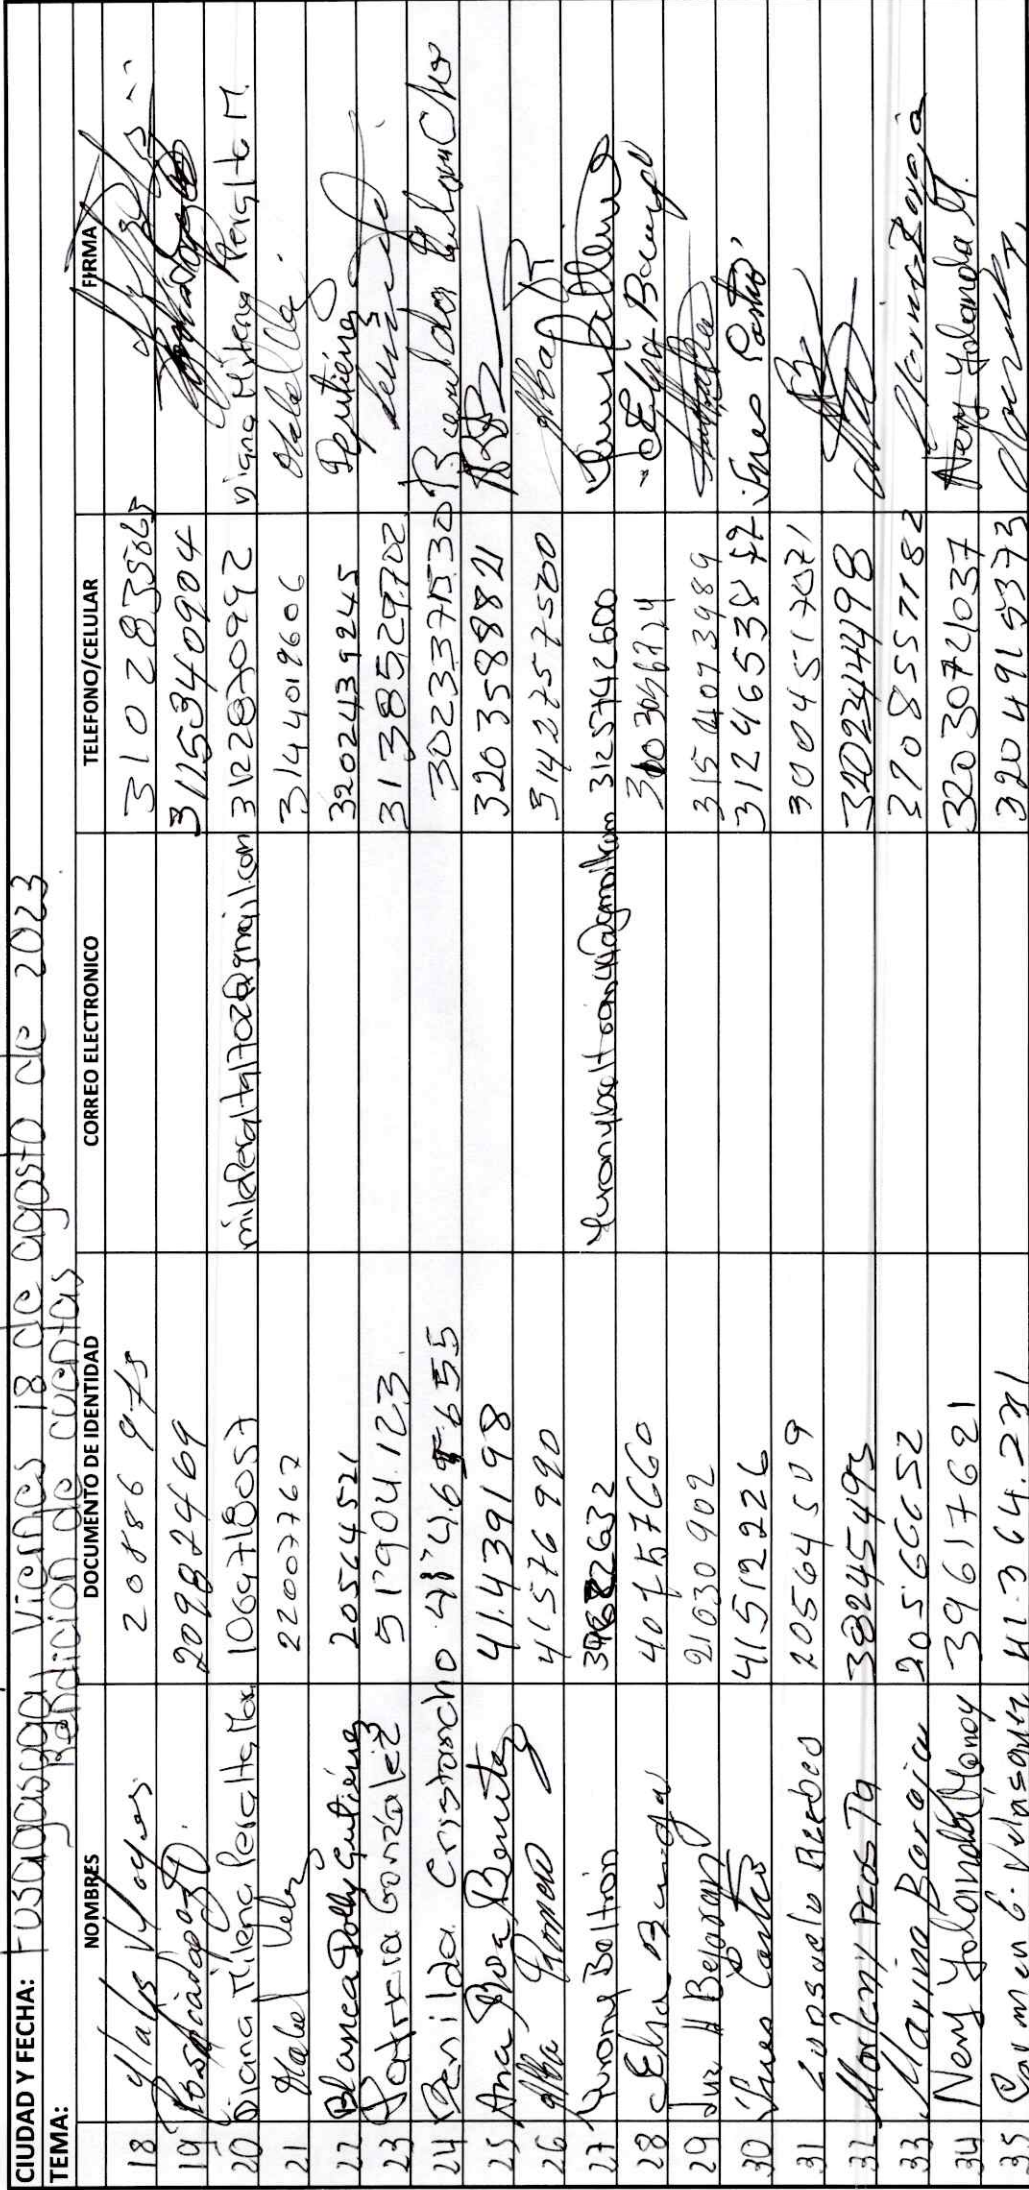 CIUDAD Y FECHA: Fusagasuga Viernes 18 de agosto de 2023
TEMA: Rendicion de cuentas
NOMBRES DOCUMENTO DE IDENTIDAD CORREO ELECTRONICO TELEFONO/CELULAR FIRMA
18 20886 975 310 2835665
19 20982469 3115340904
20 Diana Milena Peralta Mor. 1069718057 mileperalta1702@gmail.com 3122870992 Diana Milena Peralta M.
21 Mabel Velez 22007767 3144019606
22 Blanca Dolly Gutiérrez 20564521 3202439245 Gutiérrez
23 Patricia González 51904.123 3138529702
24 Benilda Cristancho 3023371530
25 Ana Rosa Benitez 41.439198 3203588821
26 Alba Romero 41576990 3142757500 Alba R
27 Yurany Beltrán 3125742600
28 Elsa 40757660
29 Luz H Bejarano 21630902 3154093989
30 Ines Castro 41512226 3124653877 Ines Castro
31 Consuelo 20564509 3004517071
32 Marleny Acosta 38245495 3202344498
33 Marina Baraja 20566652 3208557182 Marina Baraja
34 Nery Yolanda Monoy 39617621 3203074037 Nery Yolanda M.
35 Carmen C. Velásquez 41.364.231 3204915373